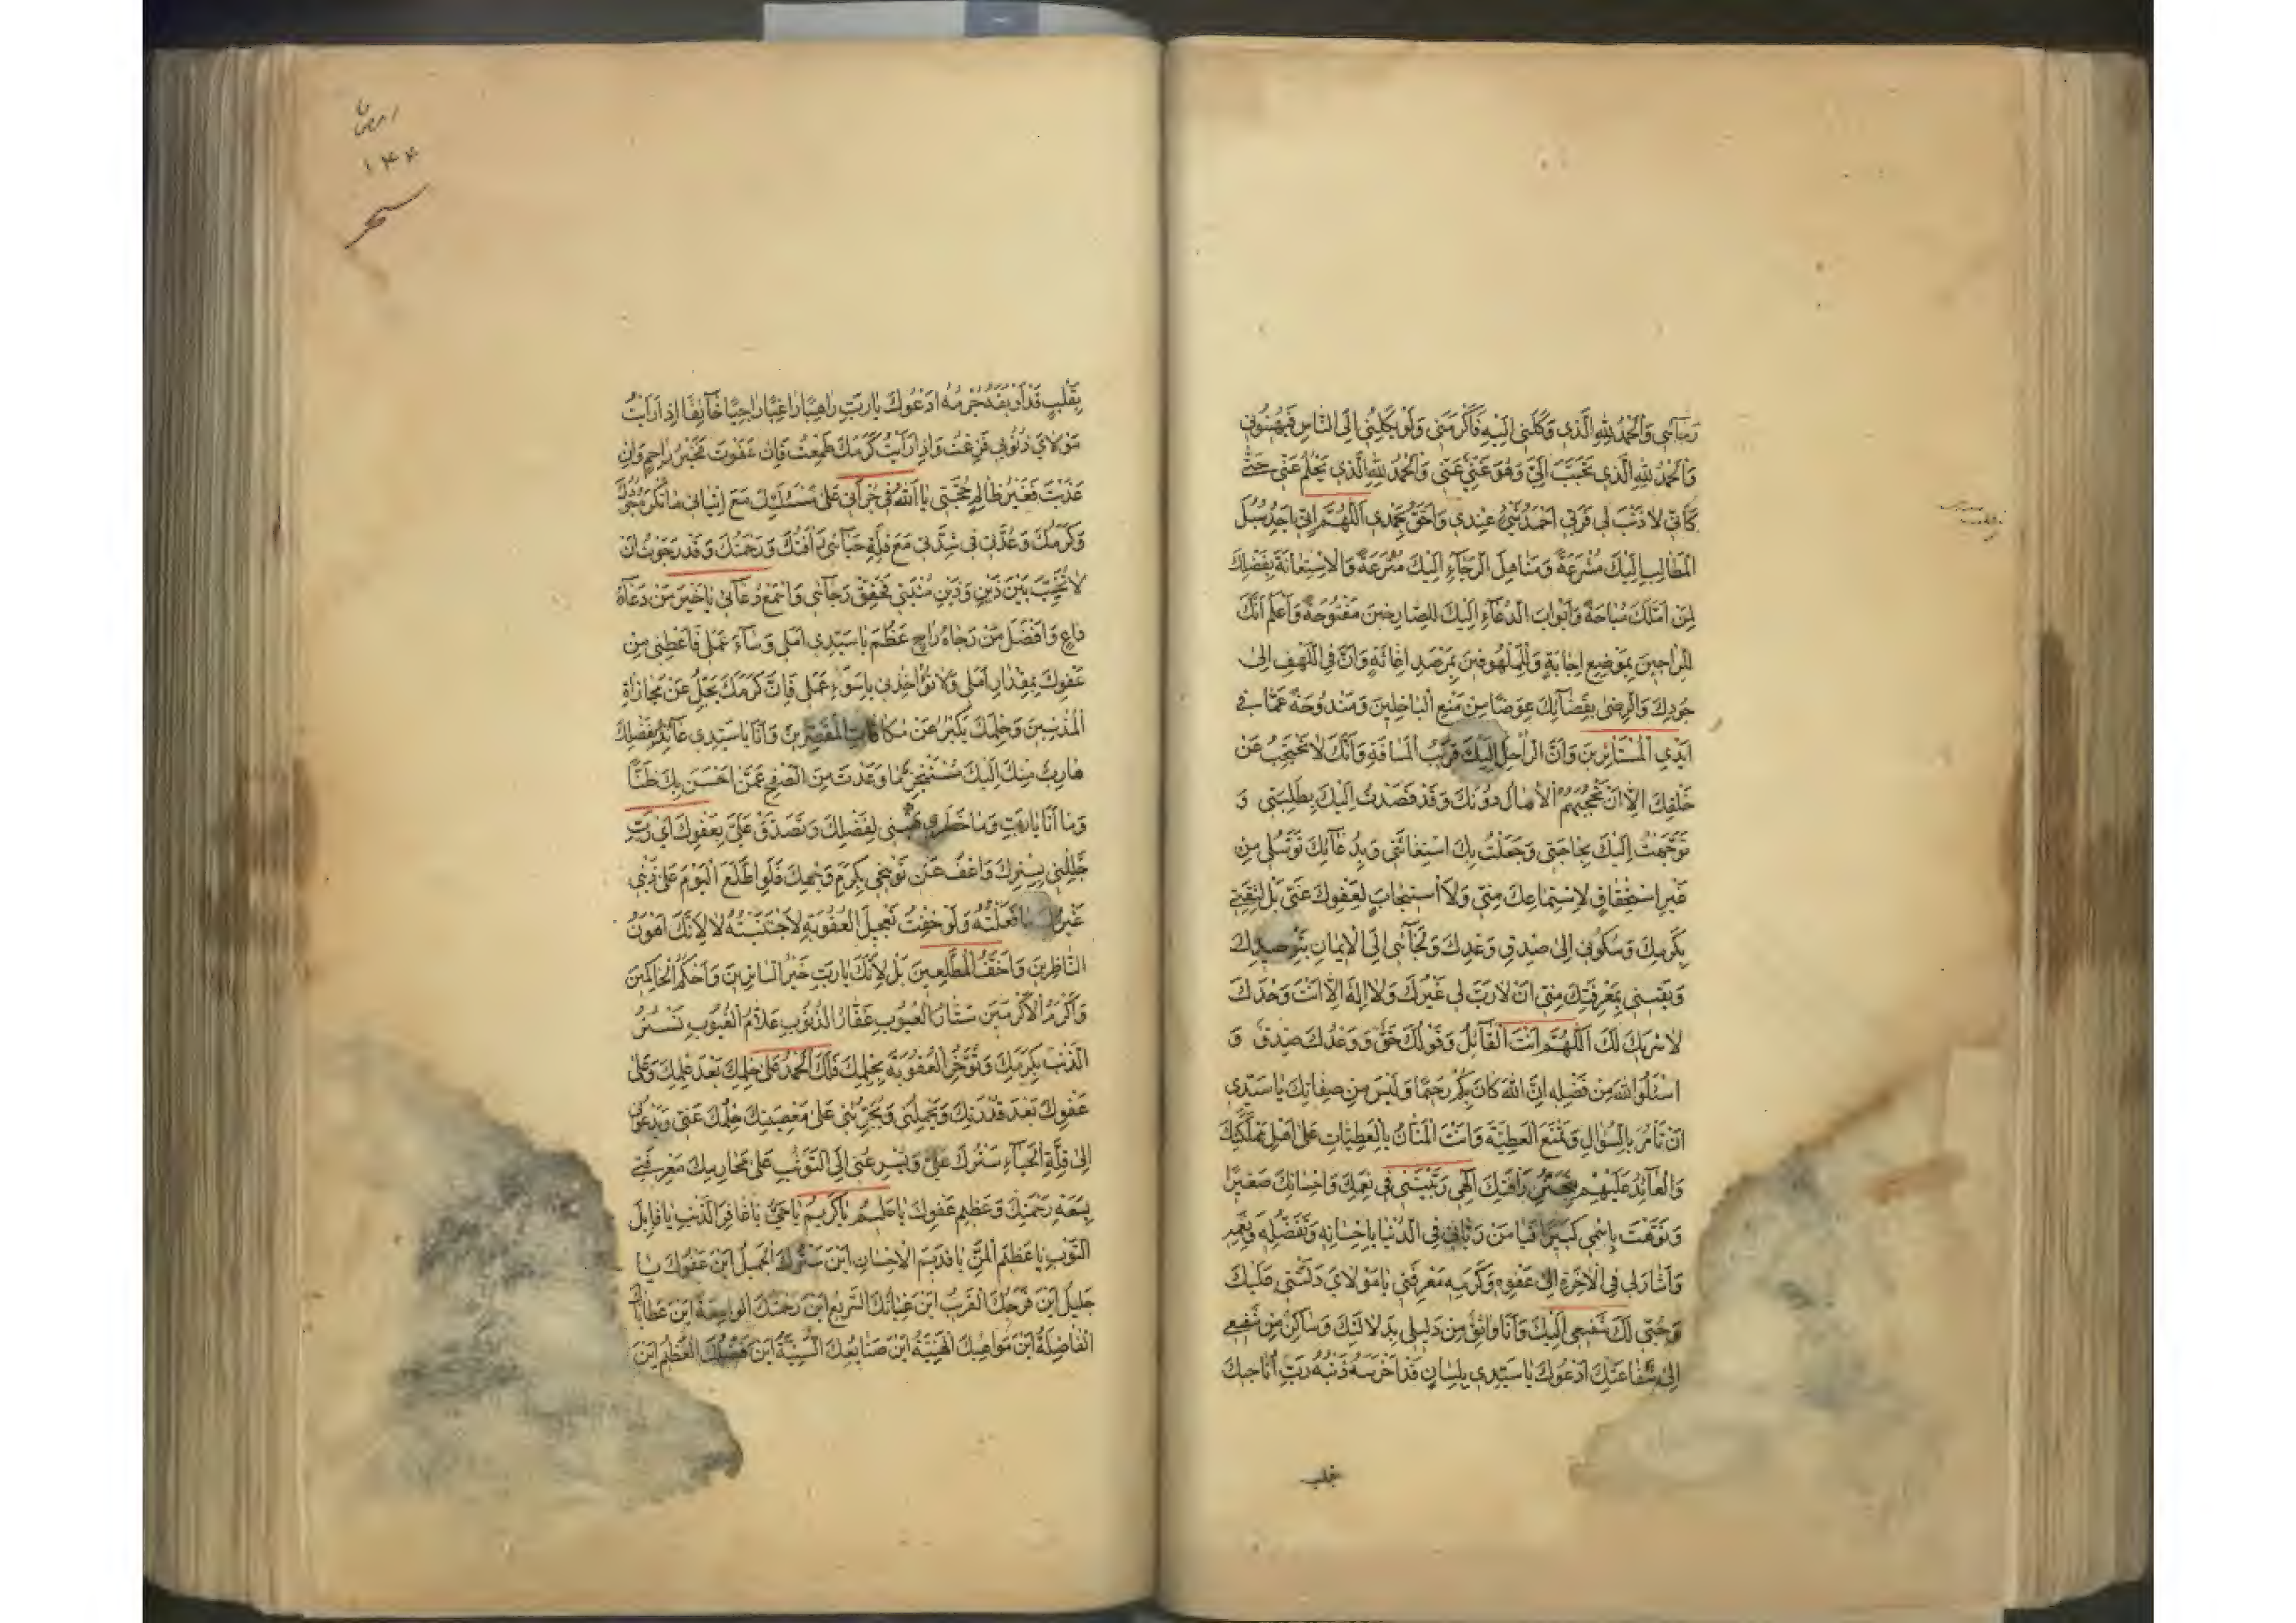 رَجَائي وَالْحَمْدُ لِلّٰهِ الَّذي وَكَلَنى اِلَيْهِ فَاَكْرَمَنى وَلَمْ يَكِلْنى اِلَى النّاسِ فَيُهينُونى
وَالْحَمْدُ لِلّٰهِ الَّذي تَحَبَّبَ اِلَيَّ وَهُوَ غَنِيٌّ عَنّى وَالْحَمْدُ لِلّٰهِ الَّذي يَحْلُمُ عَنّى حَتّى
كَاَنّى لا ذَنْبَ لى فَرَبّى اَحْمَدُ شَيْءٍ عِنْدي وَاَحَقُّ بِحَمْدي اَللّٰهُمَّ اِنّى اَجِدُ سُبُلَ
الْمَطالِبِ اِلَيْكَ مُشْرَعَةً وَمَناهِلَ الرَّجاءِ اِلَيْكَ مُتْرَعَةً وَالْاِسْتِعانَةَ بِفَضْلِكَ
لِمَنْ اَمَّلَكَ مُباحَةً وَاَبْوابَ الدُّعاءِ اِلَيْكَ لِلصّارِخينَ مَفْتُوحَةً وَاَعْلَمُ اَنَّكَ
لِلرّاجينَ بِمَوْضِعِ اِجابَةٍ وَلِلْمَلْهُوفينَ بِمَرْصَدِ اِغاثَةٍ وَاَنَّ فِى اللَّهْفِ اِلى
جُودِكَ وَالرِّضى بِقَضائِكَ عِوَضًا مِنْ مَنْعِ الْباخِلينَ وَمَنْدُوحَةً عَمّا فى
اَيْدِى الْمُسْتَأْثِرينَ وَاَنَّ الرّاحِلَ اِلَيْكَ قَريبُ الْمَسافَةِ وَاَنَّكَ لا تَحْتَجِبُ عَنْ
خَلْقِكَ اِلّا اَنْ تَحْجُبَهُمُ الْآمالُ دُونَكَ وَقَدْ قَصَدْتُ اِلَيْكَ بِطَلِبَتى وَ
تَوَجَّهْتُ اِلَيْكَ بِحاجَتى وَجَعَلْتُ بِكَ اسْتِغاثَتى وَبِدُعائِكَ تَوَسُّلى مِنْ
غَيْرِ اسْتِحْقاقٍ لِاسْتِماعِكَ مِنّى وَلَا اسْتيجابٍ لِعَفْوِكَ عَنّى بَلْ لِثِقَتى
بِكَرَمِكَ وَسُكُونى اِلى صِدْقِ وَعْدِكَ وَلَجائى اِلَى الْايمانِ بِتَوْحيدِكَ
وَيَقينى بِمَعْرِفَتِكَ مِنّى اَنْ لا رَبَّ لى غَيْرُكَ وَلا اِلٰهَ اِلّا اَنْتَ وَحْدَكَ
لا شَريكَ لَكَ اَللّٰهُمَّ اَنْتَ الْقائِلُ وَقَوْلُكَ حَقٌّ وَوَعْدُكَ صِدْقٌ وَ
اسْئَلُوا اللّٰهَ مِنْ فَضْلِهِ اِنَّ اللّٰهَ كانَ بِكُمْ رَحيمًا وَلَيْسَ مِنْ صِفاتِكَ يا سَيِّدى
اَنْ تَأْمُرَ بِالسُّؤالِ وَتَمْنَعَ الْعَطِيَّةَ وَاَنْتَ الْمَنّانُ بِالْعَطِيّاتِ عَلى اَهْلِ مَمْلَكَتِكَ
وَالْعائِدُ عَلَيْهِمْ بِتَحَنُّنِ رَأْفَتِكَ اِلٰهى رَبَّيْتَنى فى نِعَمِكَ وَاِحْسانِكَ صَغيرًا
وَنَوَّهْتَ بِاسْمى كَبيرًا فَيا مَنْ رَبّانى فِى الدُّنْيا بِاِحْسانِهِ وَتَفَضُّلِهِ وَنِعَمِهِ
وَاَشارَ لى فِى الْآخِرَةِ اِلى عَفْوِهِ وَكَرَمِهِ مَعْرِفَتى يا مَوْلاىَ دَلَّتْنى عَلَيْكَ
وَحُبّى لَكَ شَفيعى اِلَيْكَ وَاَنَا واثِقٌ مِنْ دَليلى بِدَلالَتِكَ وَساكِنٌ مِنْ شَفيعى
اِلى شَفاعَتِكَ اَدْعُوكَ يا سَيِّدى بِلِسانٍ قَدْ اَخْرَسَهُ ذَنْبُهُ رَبِّ اُناجيكَ
بِقَلْبٍ قَدْ اَوْبَقَهُ جُرْمُهُ اَدْعُوكَ يا رَبِّ راهِبًا راغِبًا راجِيًا خائِفًا اِذا رَاَيْتُ
مَوْلاىَ ذُنُوبى فَزِعْتُ وَاِذا رَاَيْتُ كَرَمَكَ طَمِعْتُ فَاِنْ عَفَوْتَ فَخَيْرُ راحِمٍ وَاِنْ
عَذَّبْتَ فَغَيْرُ ظالِمٍ حُجَّتى يا اَللّٰهُ فى جُرْاَتى عَلى مَسْئَلَتِكَ مَعَ اِتْيانى ما تَكْرَهُ جُودُكَ
وَكَرَمُكَ وَعُدَّتى فى شِدَّتى مَعَ قِلَّةِ حَيائى رَأْفَتُكَ وَرَحْمَتُكَ وَقَدْ رَجَوْتُ اَنْ
لا تُخَيِّبَ بَيْنَ ذَيْنِ وَذَيْنِ مُنْيَتى فَحَقِّقْ رَجائى وَاسْمَعْ دُعائى يا خَيْرَ مَنْ دَعاهُ
داعٍ وَاَفْضَلَ مَنْ رَجاهُ راجٍ عَظُمَ يا سَيِّدى اَمَلى وَساءَ عَمَلى فَاَعْطِنى مِنْ
عَفْوِكَ بِمِقْدارِ اَمَلى وَلا تُؤاخِذْنى بِاَسْوَءِ عَمَلى فَاِنَّ كَرَمَكَ يَجِلُّ عَنْ مُجازاةِ
الْمُذْنِبينَ وَحِلْمَكَ يَكْبُرُ عَنْ مُكافاتِ الْمُقَصِّرينَ وَاَنَا يا سَيِّدى عائِذٌ بِفَضْلِكَ
هارِبٌ مِنْكَ اِلَيْكَ مُتَنَجِّزٌ ما وَعَدْتَ مِنَ الصَّفْحِ عَمَّنْ اَحْسَنَ بِكَ ظَنًّا
وَما اَنَا يا رَبِّ وَما خَطَرى هَبْنى لِفَضْلِكَ وَتَصَدَّقْ عَلَيَّ بِعَفْوِكَ اَىْ رَبِّ
جَلِّلْنى بِسِتْرِكَ وَاعْفُ عَنْ تَوْبيخى بِكَرَمِ وَجْهِكَ فَلَوِ اطَّلَعَ الْيَوْمَ عَلى ذَنْبى
غَيْرُكَ ما فَعَلْتُهُ وَلَوْ خِفْتُ تَعْجيلَ الْعُقُوبَةِ لَاجْتَنَبْتُهُ لا لِاَنَّكَ اَهْوَنُ
النّاظِرينَ وَاَخَفُّ الْمُطَّلِعينَ بَلْ لِاَنَّكَ يا رَبِّ خَيْرُ السّاتِرينَ وَاَحْكَمُ الْحاكِمينَ
وَاَكْرَمُ الْاَكْرَمينَ سَتّارُ الْعُيُوبِ غَفّارُ الذُّنُوبِ عَلّامُ الْغُيُوبِ تَسْتُرُ
الذَّنْبَ بِكَرَمِكَ وَتُؤَخِّرُ الْعُقُوبَةَ بِحِلْمِكَ فَلَكَ الْحَمْدُ عَلى حِلْمِكَ بَعْدَ عِلْمِكَ وَعَلى
عَفْوِكَ بَعْدَ قُدْرَتِكَ وَيَحْمِلُنى وَيُجَرِّئُنى عَلى مَعْصِيَتِكَ حِلْمُكَ عَنّى وَيَدْعُونى
اِلى قِلَّةِ الْحَياءِ سَتْرُكَ عَلَيَّ وَيُسْرِعُنى اِلَى التَّوَثُّبِ عَلى مَحارِمِكَ مَعْرِفَتى
بِسَعَةِ رَحْمَتِكَ وَعَظيمِ عَفْوِكَ يا حَليمُ يا كَريمُ يا حَىُّ يا غافِرَ الذَّنْبِ يا قابِلَ
التَّوْبِ يا عَظيمَ الْمَنِّ يا قَديمَ الْاِحْسانِ اَيْنَ سَتْرُكَ الْجَميلُ اَيْنَ عَفْوُكَ يا
جَليلُ اَيْنَ فَرَجُكَ الْقَريبُ اَيْنَ غِياثُكَ السَّريعُ اَيْنَ رَحْمَتُكَ الْواسِعَةُ اَيْنَ عَطاياكَ
الْفاضِلَةُ اَيْنَ مَواهِبُكَ الْهَنيئَةُ اَيْنَ صَنائِعُكَ السَّنِيَّةُ اَيْنَ فَضْلُكَ الْعَظيمُ اَيْنَ
۱۴۴
سحر